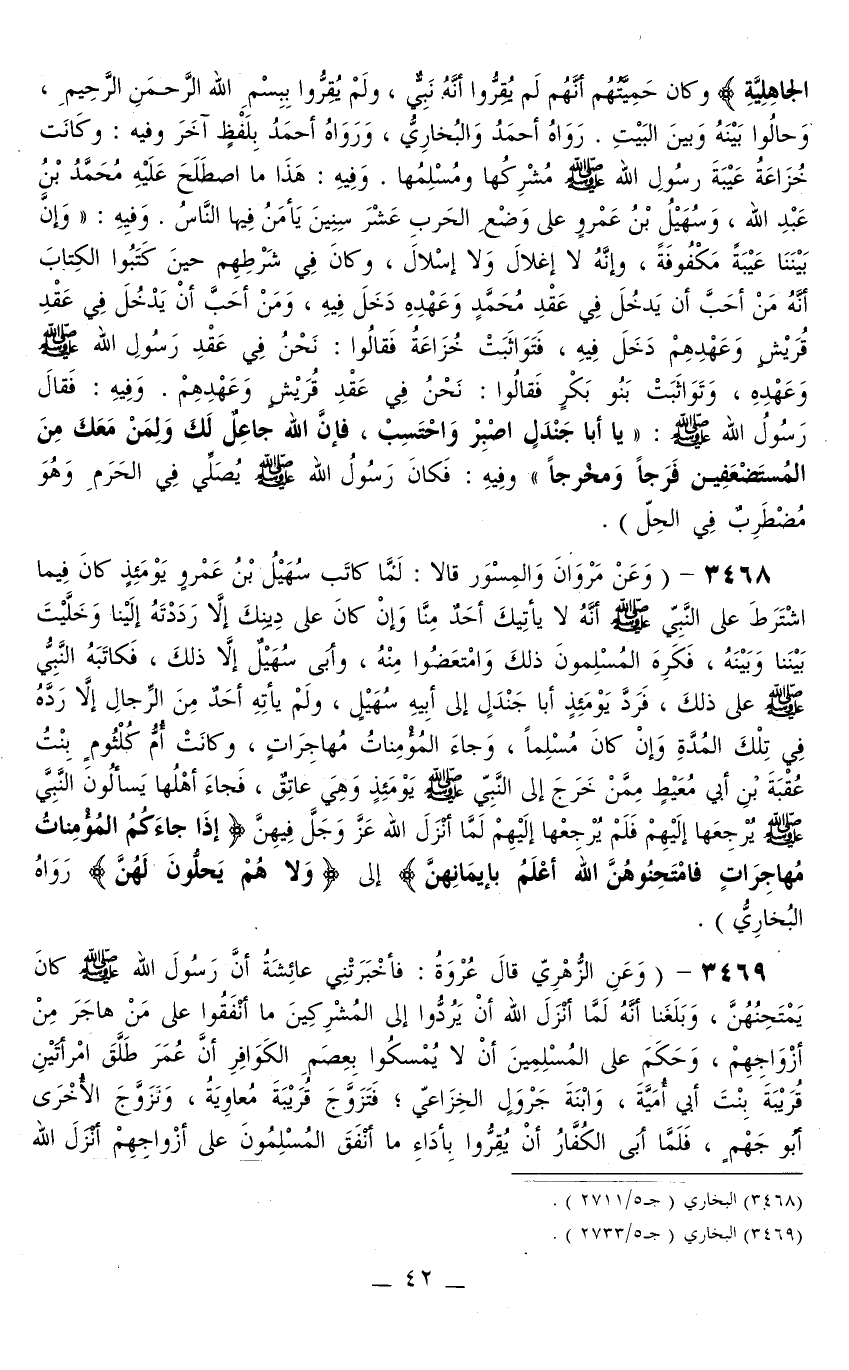 الجاهِليَّةِ ﴾ وكان حَمِيَّتُهُم أنَّهُم لَم يُقِرُّوا أنَّهُ نَبِيٌّ ، ولَمْ يُقِرُّوا بِبِسْمِ الله الرَّحمَنِ الرَّحِيمِ ،
وَحالُوا بَيْنَهُ وَبينَ البَيْتِ . رَوَاهُ أحمَدُ وَالبُخاريُّ ، وَرَوَاهُ أحمَدُ بِلَفْظٍ آخَرَ وفيه : وكانَت
خُزَاعَةُ عَيْبَةَ رسولِ الله ﷺ مُشْرِكُها ومُسْلِمُها . وَفِيهِ : هَذَا ما اصطَلَحَ عَلَيْهِ مُحَمَّدُ بْنُ
عَبْدِ الله ، وَسُهَيْلُ بْنُ عَمْرٍو على وَضْعِ الحَربِ عَشْرَ سِنِينَ يَأمَنُ فيها النَّاسُ . وَفِيهِ : « وَإنَّ
بَيْنَنا عَيْبَةً مَكْفُوفَةً ، وإنَّهُ لا إغلالَ وَلا إسْلالَ ، وكانَ فِي شَرْطِهِم حينَ كَتَبُوا الكِتابَ
أنَّهُ مَنْ أحَبَّ أن يَدخُلَ فِي عَقْدِ مُحَمَّدٍ وَعَهْدِهِ دَخَلَ فِيهِ ، وَمَنْ أحَبَّ أنْ يَدْخُلَ فِي عَقْدِ
قُرَيْشٍ وَعَهْدِهِمْ دَخَلَ فِيهِ ، فَتَوَاثَبَتْ خُزَاعَةُ فَقالُوا : نَحْنُ فِي عَقْدِ رَسُولِ الله ﷺ
وَعَهْدِهِ ، وَتَوَاثَبَتْ بَنُو بَكْرٍ فَقالُوا : نَحْنُ فِي عَقْدِ قُرَيْشٍ وَعَهْدِهِمْ . وَفِيهِ : فَقالَ
رَسُولُ الله ﷺ : « يا أبا جَنْدَلٍ اصْبِرْ وَاحْتَسِبْ ، فإنَّ الله جاعِلٌ لَكَ وَلِمَنْ مَعَكَ مِنَ
المُستَضْعَفِينَ فَرَجاً وَمخْرجاً » وفِيهِ : فَكانَ رَسُولُ الله ﷺ يُصَلِّي فِي الحَرَمِ وَهُوَ
مُضْطَرِبٌ فِي الحِلّ ) .
٣٤٦٨ - ( وَعَنْ مَرْوَانَ وَالمِسْوَرِ قالا : لَمَّا كاتَب سُهَيْلُ بْنُ عَمْرٍو يَوْمَئِذٍ كانَ فِيما
اشْتَرَطَ على النَّبِيّ ﷺ أنَّهُ لا يأتِيكَ أحَدٌ مِنَّا وَإنْ كانَ على دِينِكَ إلَّا رَدَدْتَهُ إلَيْنا وَخَلَّيْتَ
بَيْنَنا وَبَيْنَهُ ، فَكَرِهَ المُسْلِمونَ ذلكَ وَامْتَعَضُوا مِنْهُ ، وأبَى سُهَيْلٌ إلَّا ذلكَ ، فَكاتَبَهُ النَّبِيُّ
ﷺ على ذلكَ ، فَرَدَّ يَوْمَئِذٍ أبا جَنْدَلٍ إلى أبِيهِ سُهَيْلٍ ، ولَمْ يأتِهِ أحَدٌ مِنَ الرِّجالِ إلَّا رَدَّهُ
فِي تِلْكَ المُدَّةِ وَإنْ كانَ مُسْلِماً ، وَجاءَ المُؤْمِناتُ مُهاجِرَاتٍ ، وكانَتْ أُمُّ كُلْثُومٍ بِنْتُ
عُقْبَةَ بْنِ أبي مُعَيْطٍ مِمَّنْ خَرَجَ إلى النَّبِيّ ﷺ يَوْمَئِذٍ وَهِيَ عاتِقٌ ، فَجاءَ أهْلُها يَسألُونَ النَّبِيَّ
ﷺ يُرْجِعَها إلَيْهِمْ فَلَمْ يُرْجِعْها إلَيْهِمْ لَمَّا أنْزَلَ الله عَزَّ وَجَلَّ فِيهِنَّ ﴿ إذَا جاءَكُمُ المُؤْمِناتُ
مُهاجِرَاتٍ فامْتَحِنُوهُنَّ الله أعْلَمُ بإيمَانِهنَّ ﴾ إلى ﴿ وَلا هُمْ يَحلُّونَ لَهُنَّ ﴾ رَوَاهُ
البُخارِيُّ ) .
٣٤٦٩ - ( وَعَنِ الزُّهْرِيّ قالَ عُرْوَةُ : فأخْبَرَتْنِي عائِشَةُ أنَّ رَسُولَ الله ﷺ كانَ
يَمْتَحِنُهُنَّ ، وَبَلَغَنا أنَّهُ لَمَّا أنْزَلَ الله أنْ يَرُدُّوا إلى المُشْرِكِينَ ما أنْفَقُوا على مَنْ هاجَرَ مِنْ
أزْوَاجِهِمْ ، وَحَكَمَ على المُسْلِمينَ أنْ لا يُمْسكُوا بِعِصَمِ الكَوَافِرِ أنَّ عُمَرَ طَلَّقَ امْرأتَيْنِ
قُرَيْبَةَ بِنْتَ أبي أُمَيَّةَ ، وَابْنَةَ جَرْوَلٍ الخِزَاعيّ ؛ فَتَزَوَّجَ قُرَيْبَةَ مُعاوِيَةُ ، وَتَزَوَّجَ الأُخْرَى
أبُو جَهْمٍ ، فَلَمَّا أبَى الكُفَّارُ أنْ يُقِرُّوا بِأدَاءِ ما أنْفَقَ المُسْلِمُونَ على أزْواجِهِمْ أنْزَلَ الله
(٣٤٦٨) البخاري ( جـ٢٧١١/٥ ) .
(٣٤٦٩) البخاري ( جـ٢٧٣٣/٥ ) .
ــ ٤٢ ــ